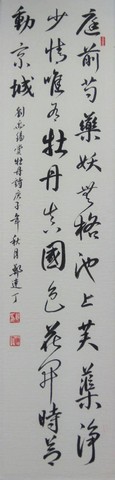 庭前芍藥妖無格池上芙蕖淨
少情唯有牡丹真國色花開時節
動京城
劉禹錫賞牡丹詩庚子年秋月鄭